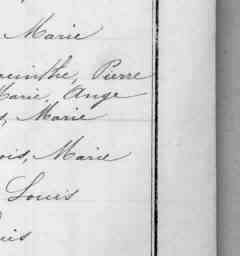 Marie
acinthe, Pierre
Marie, Ange
s, Marie
ois, Marie
Louis
uis